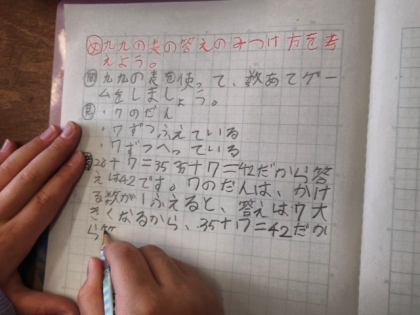 め 九九の表の答えのみつけ方を考
えよう。
問 九九の表を使って、数あてゲー
ムをしましょう。
・7のだん
・7ずつふえている
・7ずつへっている
28+7=35 35+7=42だから答
えは42です。7のだんは、かけ
る数が1ふえると、答えは7大
きくなるから、35+7=42だか
ら答